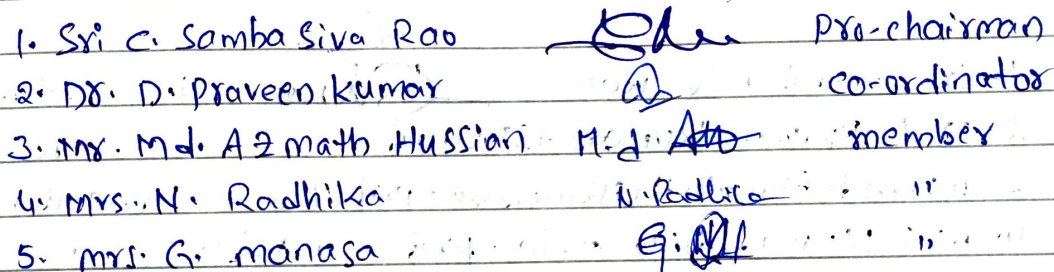 1. Sri C. Samba Siva Rao pro-chairman
2. Dr. D. Praveen kumar co-ordinator
3. Mr. Md. Azmath Hussian M.d. member
4. Mrs. N. Radhika N. Radhika "
5. Mrs. G. manasa G. "